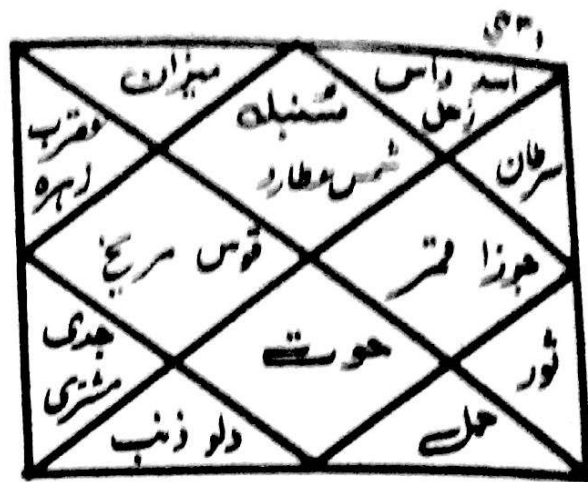 میزان
سنبلہ
شمس عطارد
اسد راس
زحل
عقرب
زہرہ
سرطان
قوس مریخ
جوزا قمر
جدی
مشتری
حوت
ثور
دلو ذنب
حمل